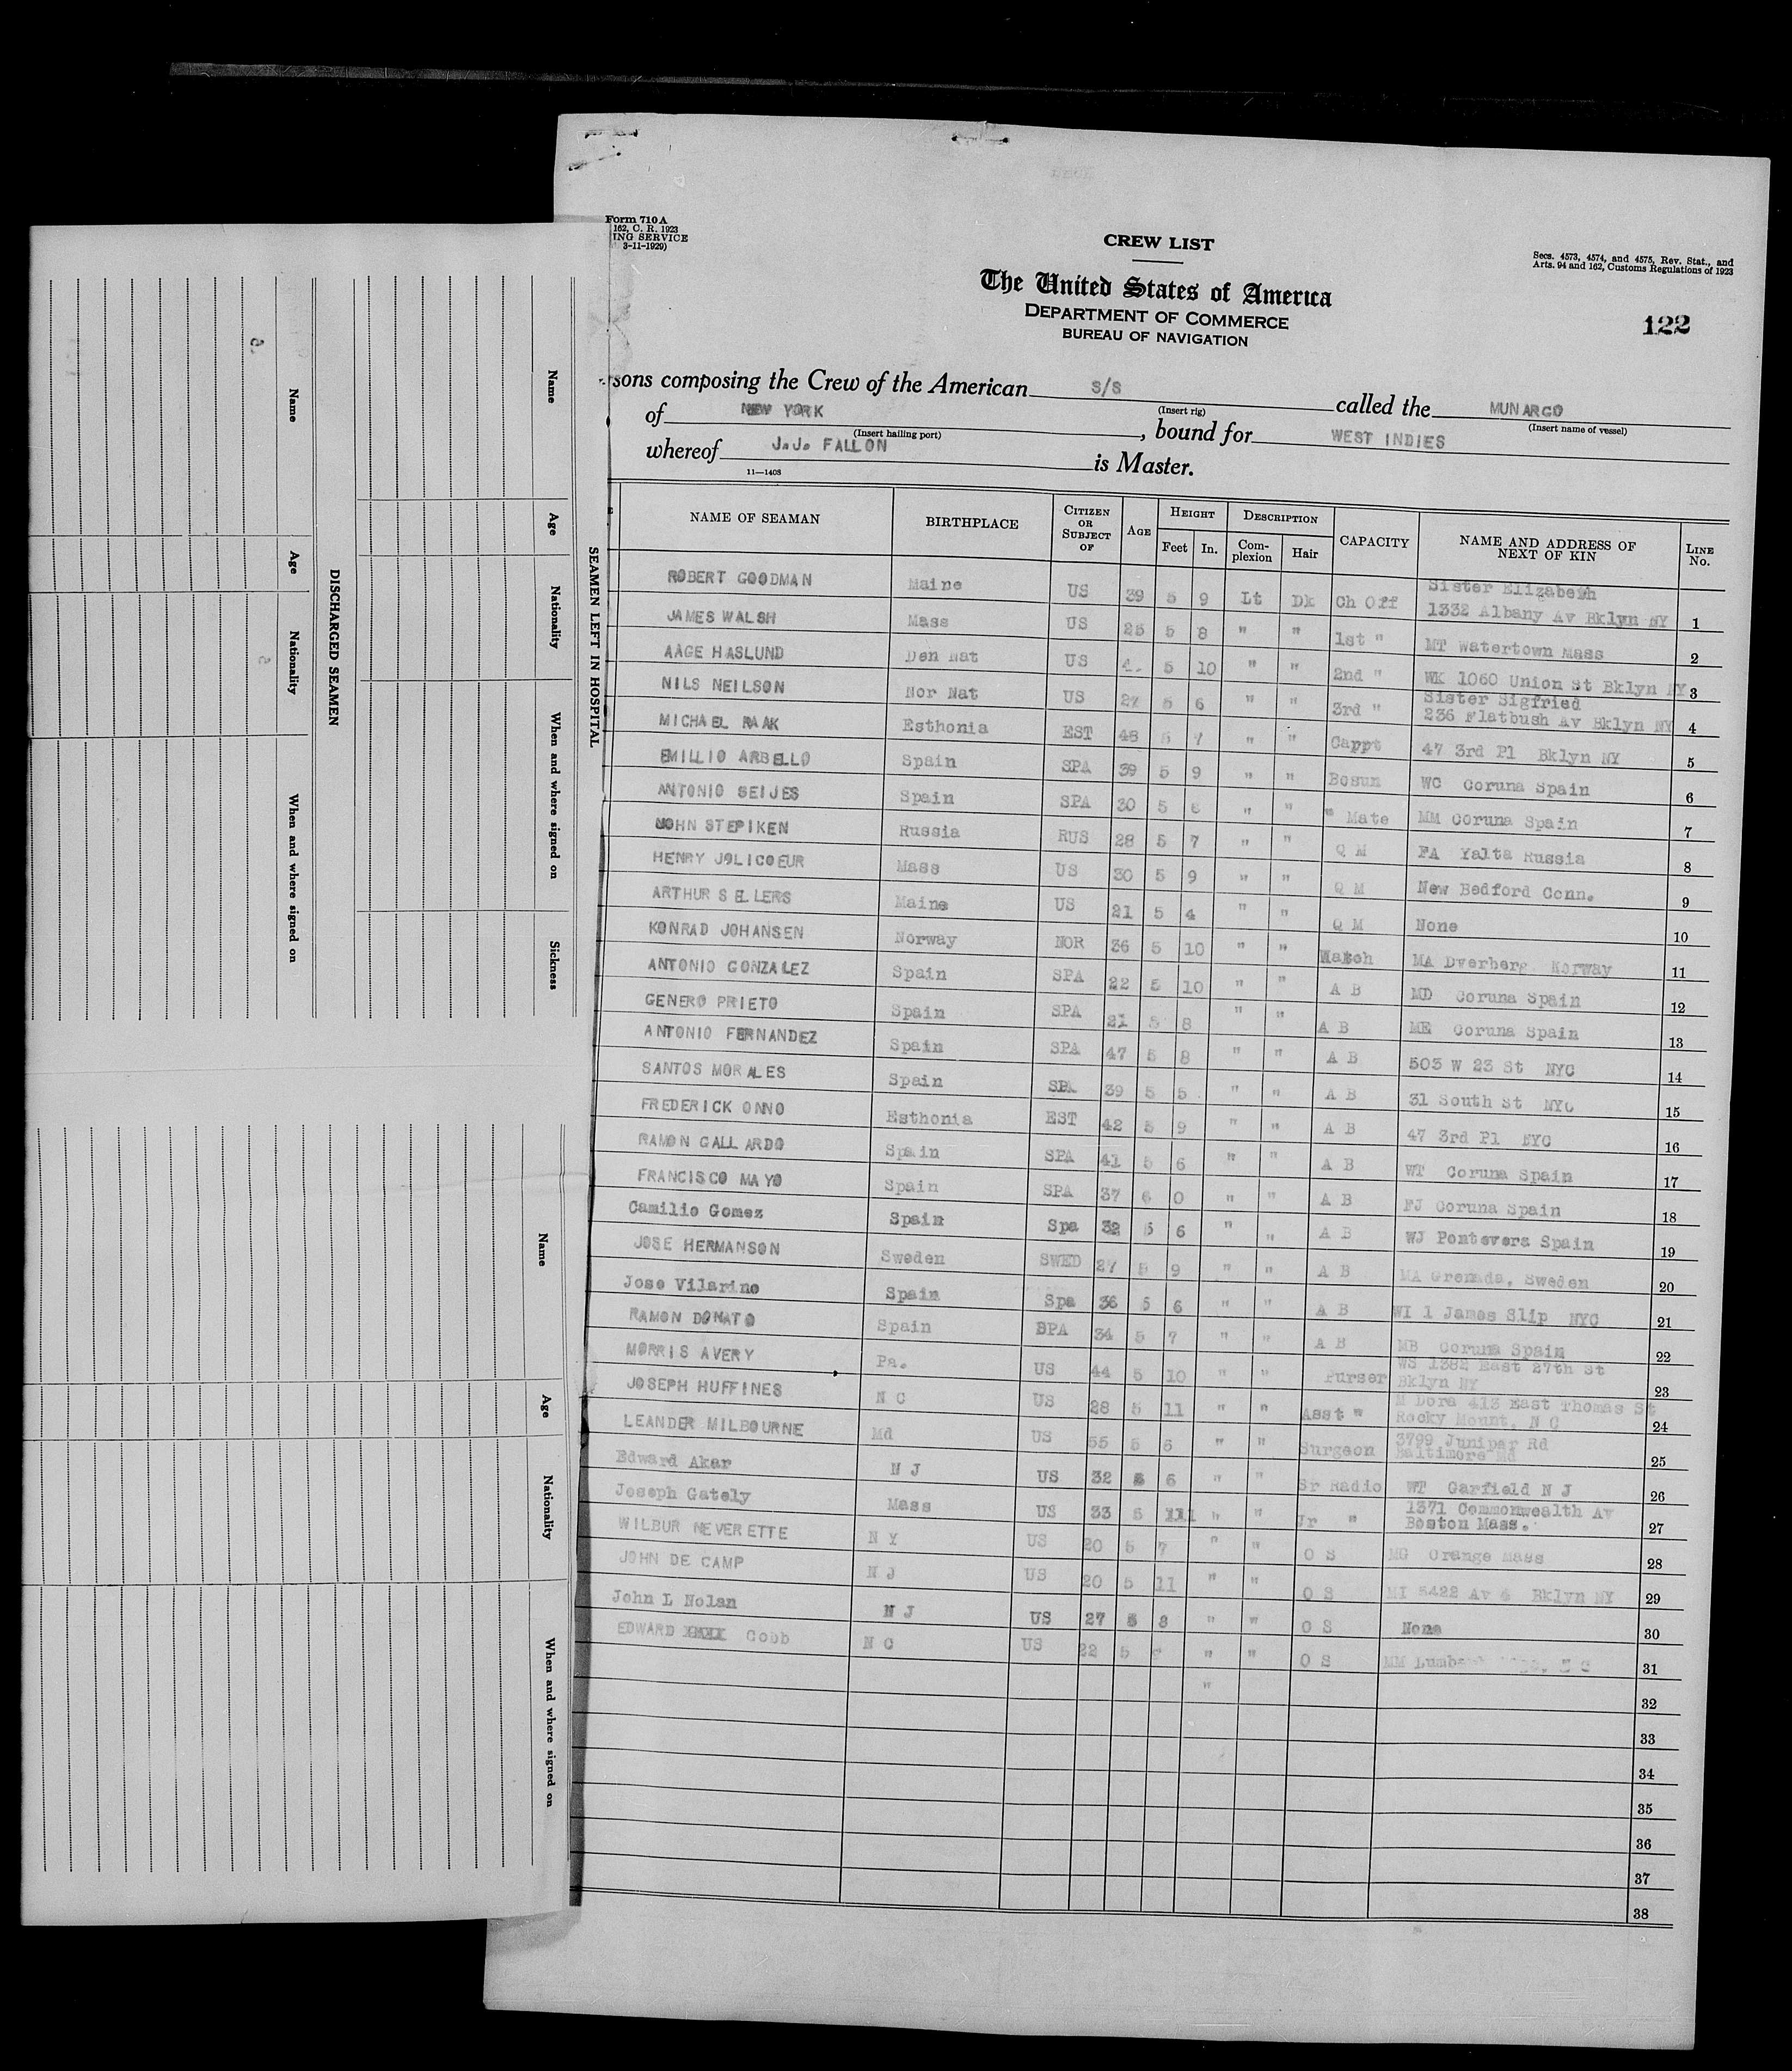 Form 710 A
162, C. R. 1923
ING SERVICE
3-11-1929)
CREW LIST
Secs. 4573, 4574, and 4575, Rev. Stat., and
Arts. 94 and 162, Customs Regulations of 1923
The United States of America
DEPARTMENT OF COMMERCE
BUREAU OF NAVIGATION
122
sons composing the Crew of the American S/S called the MUNARGO
(Insert rig) (Insert name of vessel)
of NEW YORK, bound for WEST INDIES
(Insert hailing port)
whereof J.J. FALLON is Master.
11—1408
NAME OF SEAMAN BIRTHPLACE CITIZEN OR SUBJECT OF AGE HEIGHT Feet In. DESCRIPTION Com-plexion Hair CAPACITY NAME AND ADDRESS OF NEXT OF KIN LINE No.
ROBERT GOODMAN Maine US 39 5 9 Lt Dk Ch Off Sister Elizabeth 1332 Albany Av Bklyn NY 1
JAMES WALSH Mass US 25 5 8 " " 1st " MT Watertown Mass 2
AAGE HASLUND Den Nat US 5 10 " " 2nd " WK 1060 Union St Bklyn NY 3
NILS NEILSON Nor Nat US 27 5 6 " " 3rd " Sister Sigfried 236 Flatbush Av Bklyn NY 4
MICHAEL RAAK Esthonia EST 48 5 7 " " Cappt 47 3rd Pl Bklyn NY 5
EMILLIO ARBELLO Spain SPA 39 5 9 " " Bosun WC Coruna Spain 6
ANTONIO SEIJES Spain SPA 30 5 6 " " " Mate MM Coruna Spain 7
JOHN STEPIKEN Russia RUS 28 5 7 " " Q M FA Yalta Russia 8
HENRY JOLICOEUR Mass US 30 5 9 " " Q M New Bedford Conn. 9
ARTHUR SELLERS Maine US 21 5 4 " " Q M None 10
KONRAD JOHANSEN Norway NOR 36 5 10 " " Watch MA Dverberg Norway 11
ANTONIO GONZALEZ Spain SPA 22 5 10 " " A B MD Coruna Spain 12
GENERO PRIETO Spain SPA 21 5 8 " " A B ME Coruna Spain 13
ANTONIO FERNANDEZ Spain SPA 47 5 8 " " A B 503 W 23 St NYC 14
SANTOS MORALES Spain SPA 39 5 5 " " A B 31 South St NYC 15
FREDERICK ONNO Esthonia EST 42 5 9 " " A B 47 3rd Pl NYC 16
RAMON GALLARDO Spain SPA 41 5 6 " " A B WT Coruna Spain 17
FRANCISCO MAYO Spain SPA 37 6 0 " " A B FJ Coruna Spain 18
Camilio Gomez Spain Spa 32 5 6 " " A B WJ Pontevera Spain 19
JOSE HERMANSON Sweden SWED 27 5 9 " " A B MA Grenada, Sweden 20
Jose Vilarino Spain Spa 36 5 6 " " A B WI 1 James Slip NYC 21
RAMON DONATO Spain SPA 34 5 7 " " A B MB Coruna Spain 22
MORRIS AVERY Pa. US 44 5 10 " " Purser WS 1382 East 27th St Bklyn NY 23
JOSEPH HUFFINES N C US 28 5 11 " " Asst " M Dora 413 East Thomas St Rocky Mount, N C 24
LEANDER MILBOURNE Md US 55 5 6 " " Surgeon 3799 Junipar Rd Baltimore Md 25
Edward Akar N J US 32 5 6 " " Sr Radio WT Garfield N J 26
Joseph Gately Mass US 33 5 111 " " Jr " 1371 Commonwealth Av Boston Mass. 27
WILBUR NEVERETTE N Y US 20 5 7 " " O S MG Orange Mass 28
JOHN DE CAMP N J US 20 5 11 " " O S MI 5422 Av Bklyn NY 29
John L Nolan N J US 27 5 8 " " O S None 30
EDWARD Cobb N C US 22 5 " " O S MM 31
" 32
33
34
35
36
37
38
SEAMEN LEFT IN HOSPITAL
Name Age Nationality When and where signed on Sickness
DISCHARGED SEAMEN
Name Age Nationality When and where signed on
Name Age Nationality When and where signed on